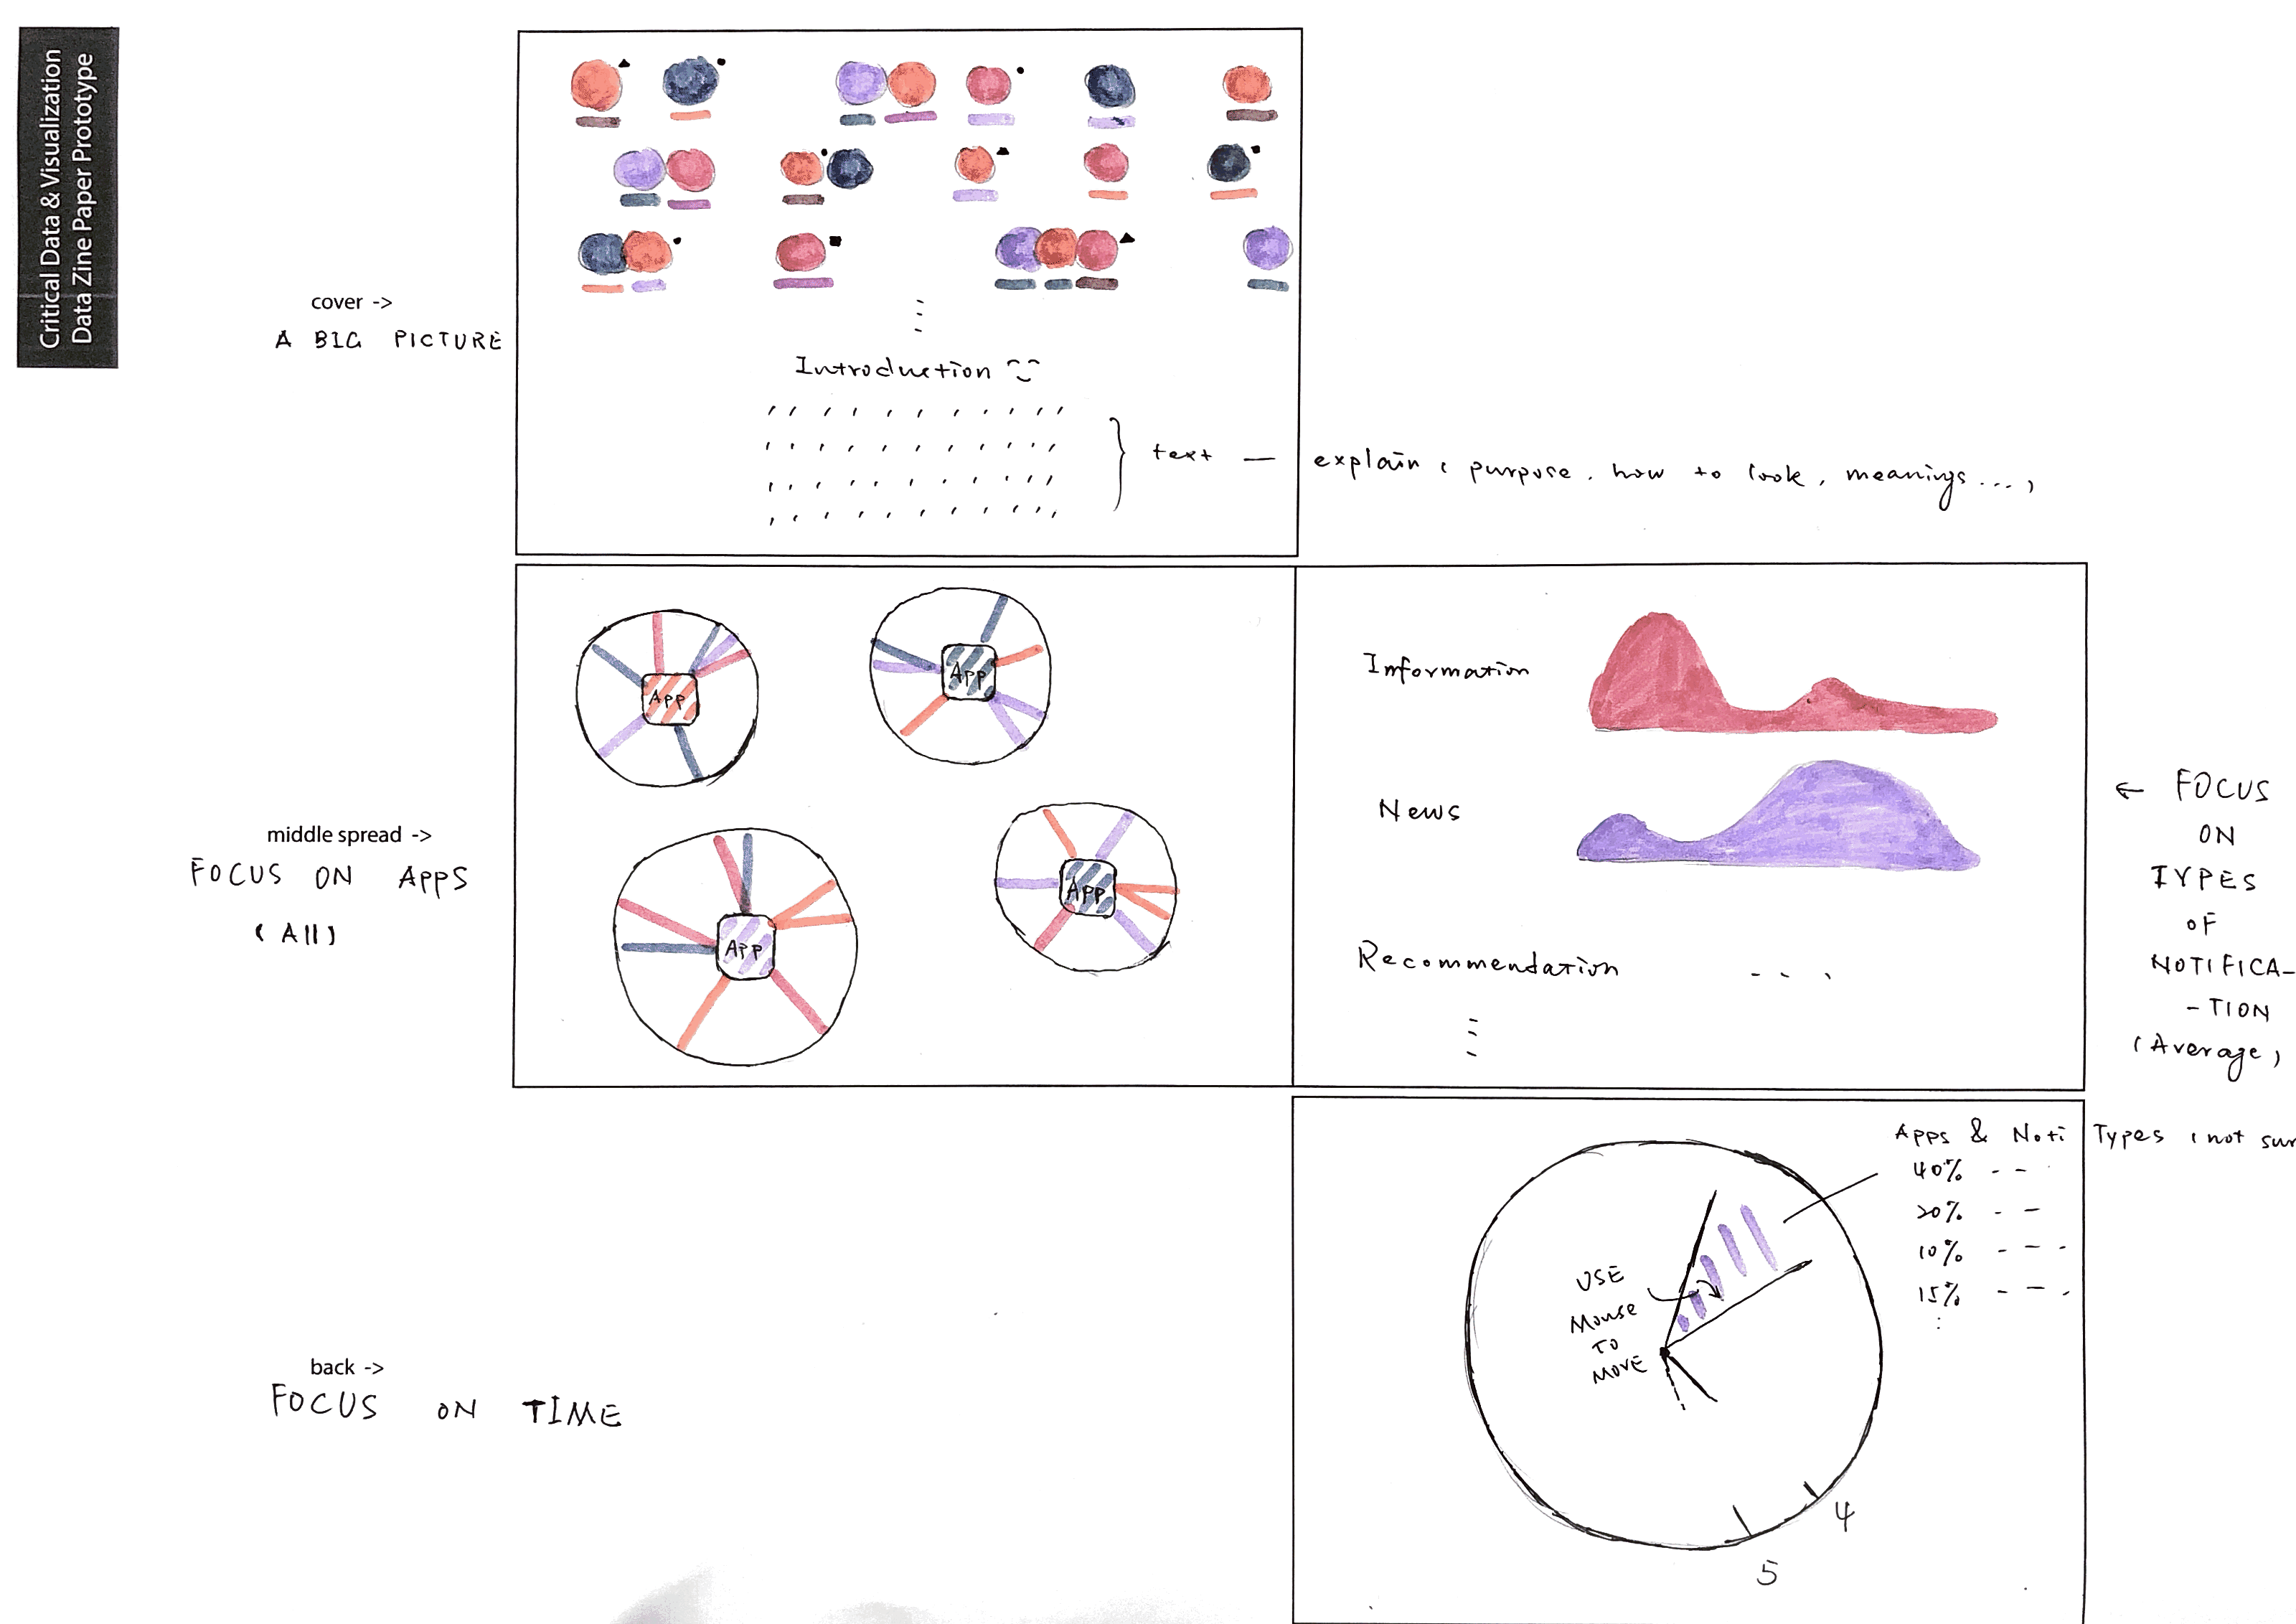 Critical Data & Visualization
Data Zine Paper Prototype
cover ->
A BIG PICTURE
Introduction
text — explain ( purpose. how to look, meanings... )
middle spread ->
FOCUS ON APPS
(All)
App
App
App
App
Information
News
Recommendation
← FOCUS
ON
TYPES
OF
NOTIFICA-
-TION
(Average)
back ->
FOCUS ON TIME
Apps & Noti Types (not
40%
20%
10%
15%
USE
Mouse
TO
MOVE
4
5